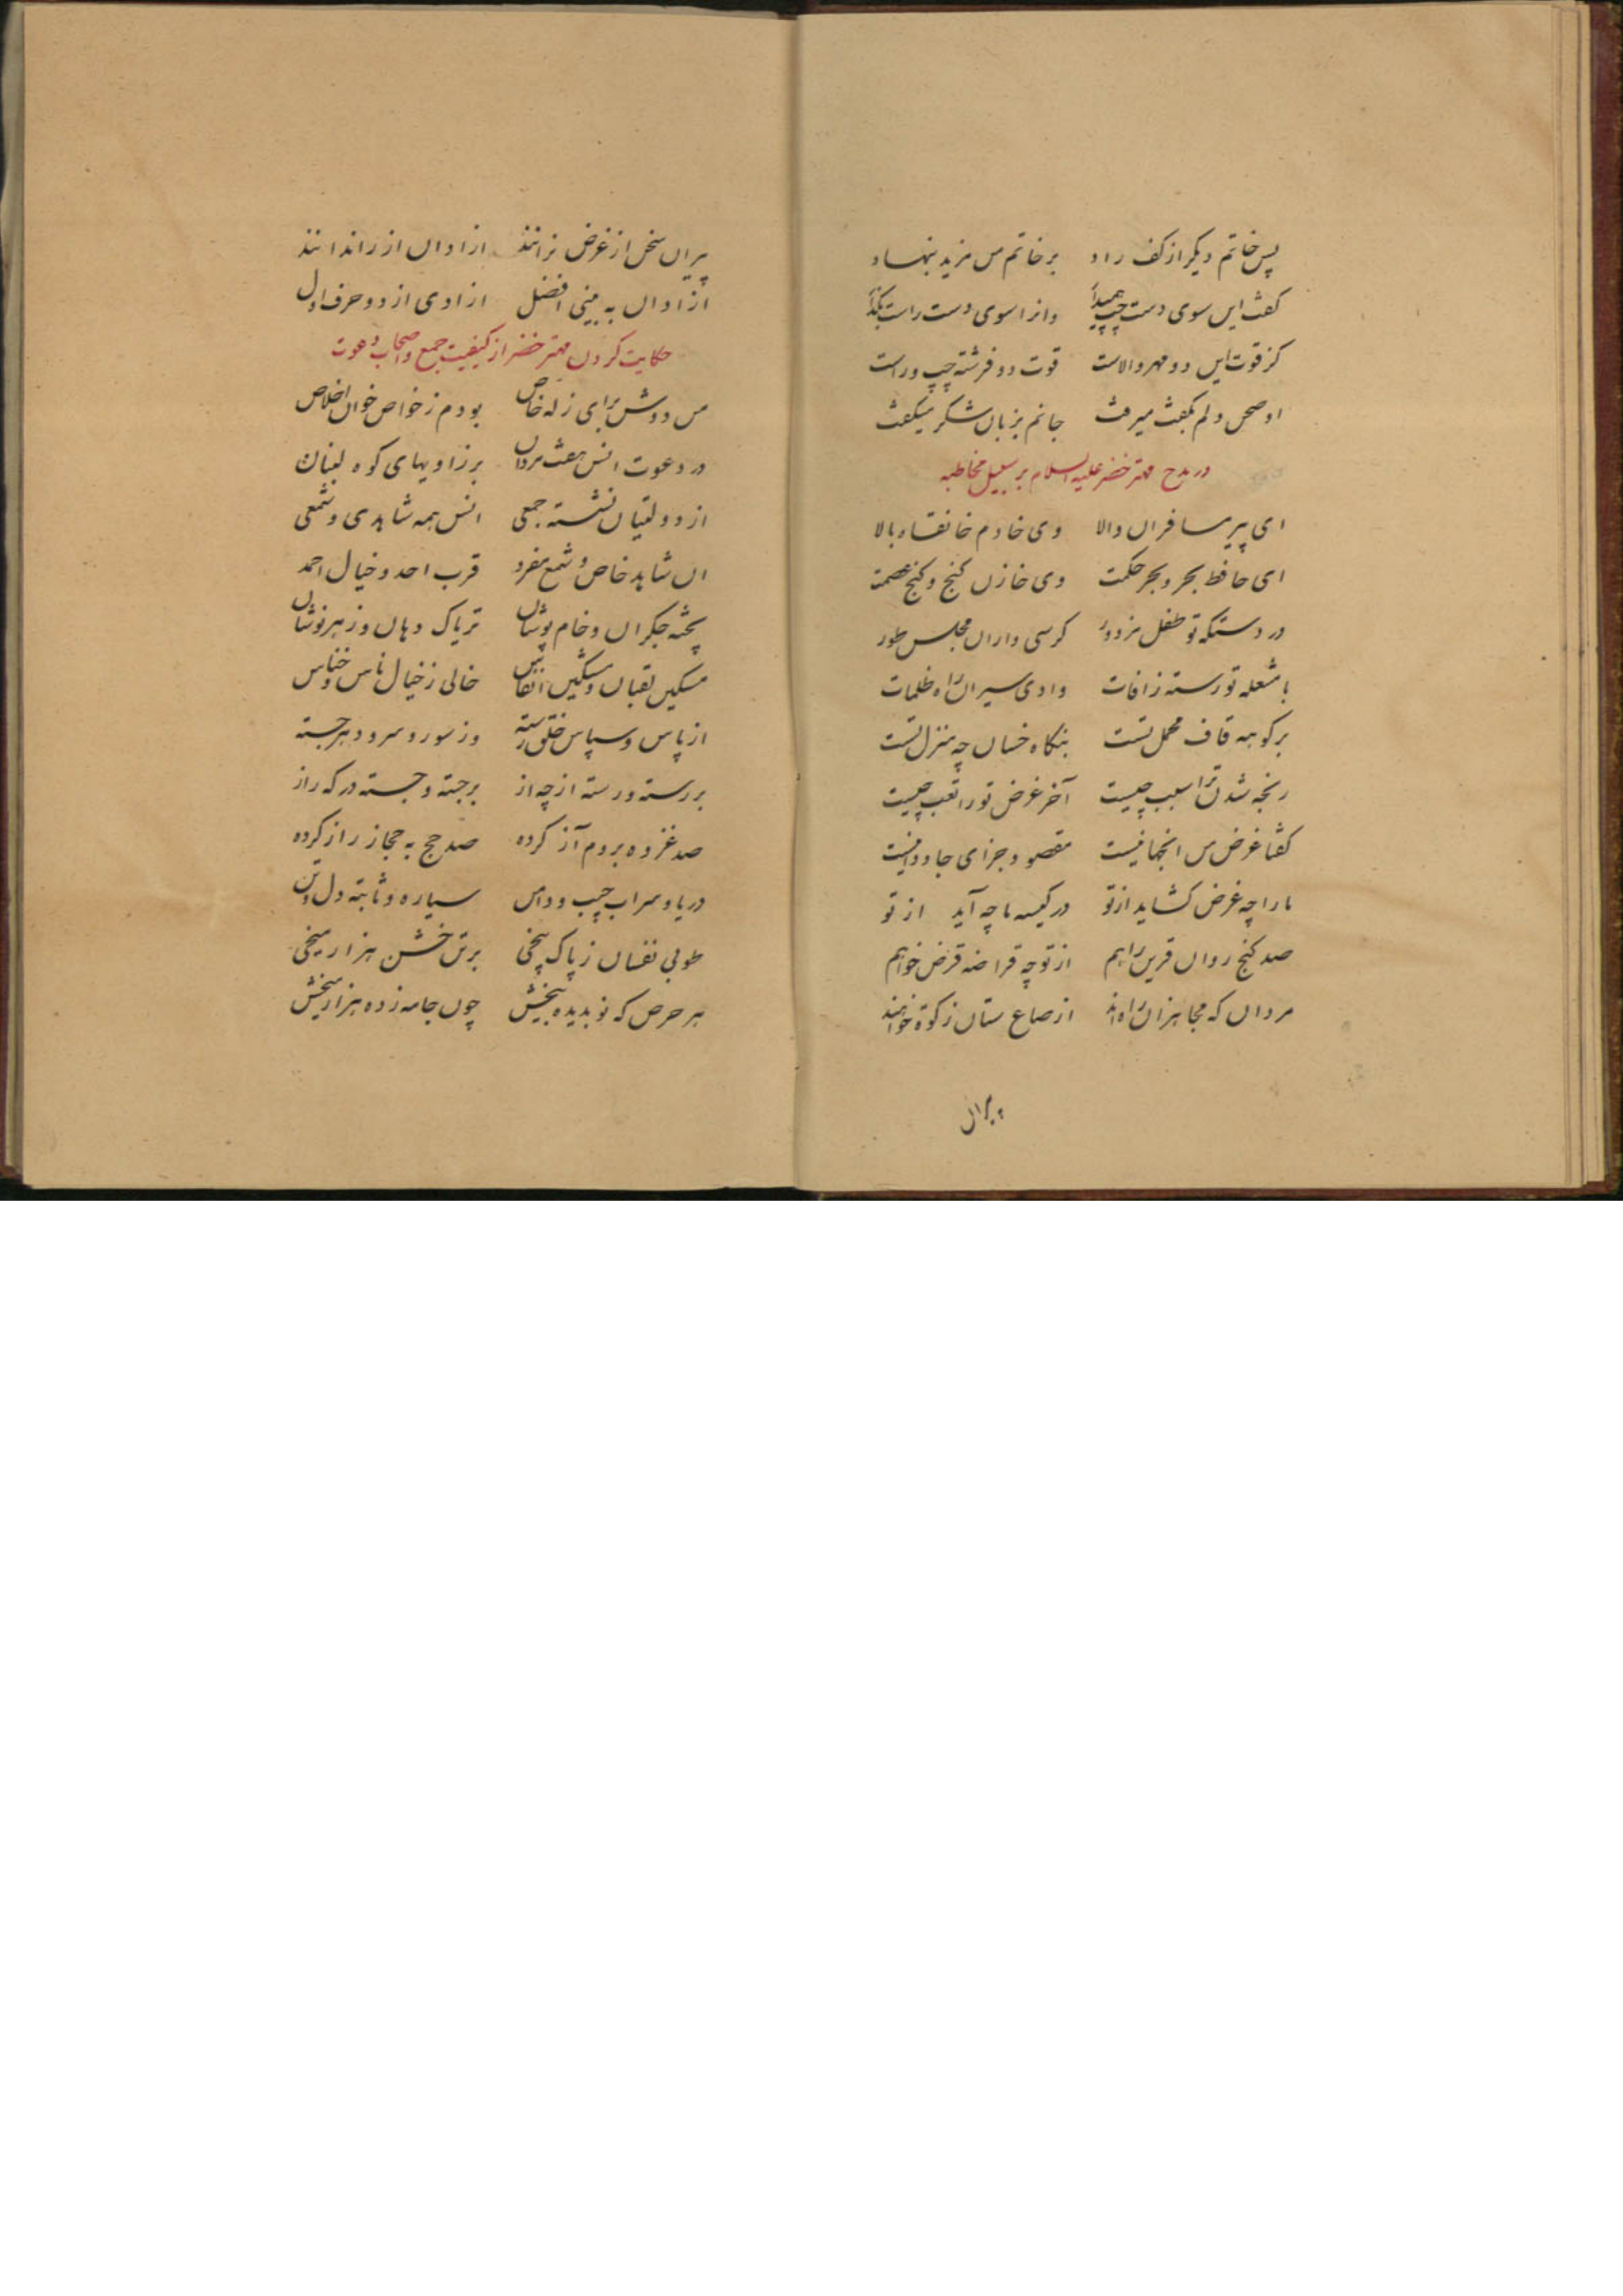 پس خاتم دیکر از کف راد بر خاتم من مزید بنهاد
کفت این سوی دست چپ همیدار وانرا سوی دست راست بکذار
کز قوت این دو مهر والاست قوت دو فرشته چپ و راست
او صحن دلم بکفت میرفت جانم بزبان شکر میکفت
در مدح مهتر خضر علیه السلام بر سبیل مخاطبه
ای پیر مسافران والا وی خادم خانقاه بالا
ای حافظ بحر و بحر حکمت وی خازن کنج و کنج عصمت
در دستکه تو طفل مزدور کرسی داران مجلس طور
با مشعله تو رسته زافات وادی سپران راه ظلمات
بر کوهه قاف محمل تست بنکاه خسان چه منزل تست
رنجه شدن ترا سبب چیست آخر غرض تو زا تعب چیست
کفتا غرض من انجهانیست مقصود جزای جاودانیست
ما را چه غرض کشاید از تو در کیسه ما چه آید از تو
صد کنج روان قرین راهیم از تو چه قراضه قرض خواهیم
مردان که مجاهزان راه اند از صاع ستان زکوة خواهند
پیران
پیران سخن از غرض نرانند ازادان از راندانند
ازادان به بینی افضل ازادی از دو حرف اول
حکایت کردن مهتر خضر از کیفیت جمع و اصحاب دعوت
من دوش برای زله خاص بودم ز خواص خوان اخلاص
در دعوت انس هفت مردان بر زاویهای کوه لبنان
از دولتیان نشسته جمعی انس همه شاهدی و شمعی
ان شاهد خاص و شمع مفرد قرب احد و خیال احمد
پخته جکران و خام پوشان تریاک دهان و زهر نوشان
مسکین لقبان و مشکین انفاس خالی ز خیال ناس و خناس
از پاس و سپاس خلق رسته وز سور و سرود هر جسته
بر رسته و رسته از چه از برجسته و جسته در که راز
صد غزوه بروم آز کرده صد حج به حجاز راز کرده
دریا و سراب جیب و دامن سیاره و ثابته دل و تن
طوبی نفسان ز پاک بیخی بر تن خشن هزار میخی
هر حرص که نو بدیده بیخش چون جامه زده هزار میخش